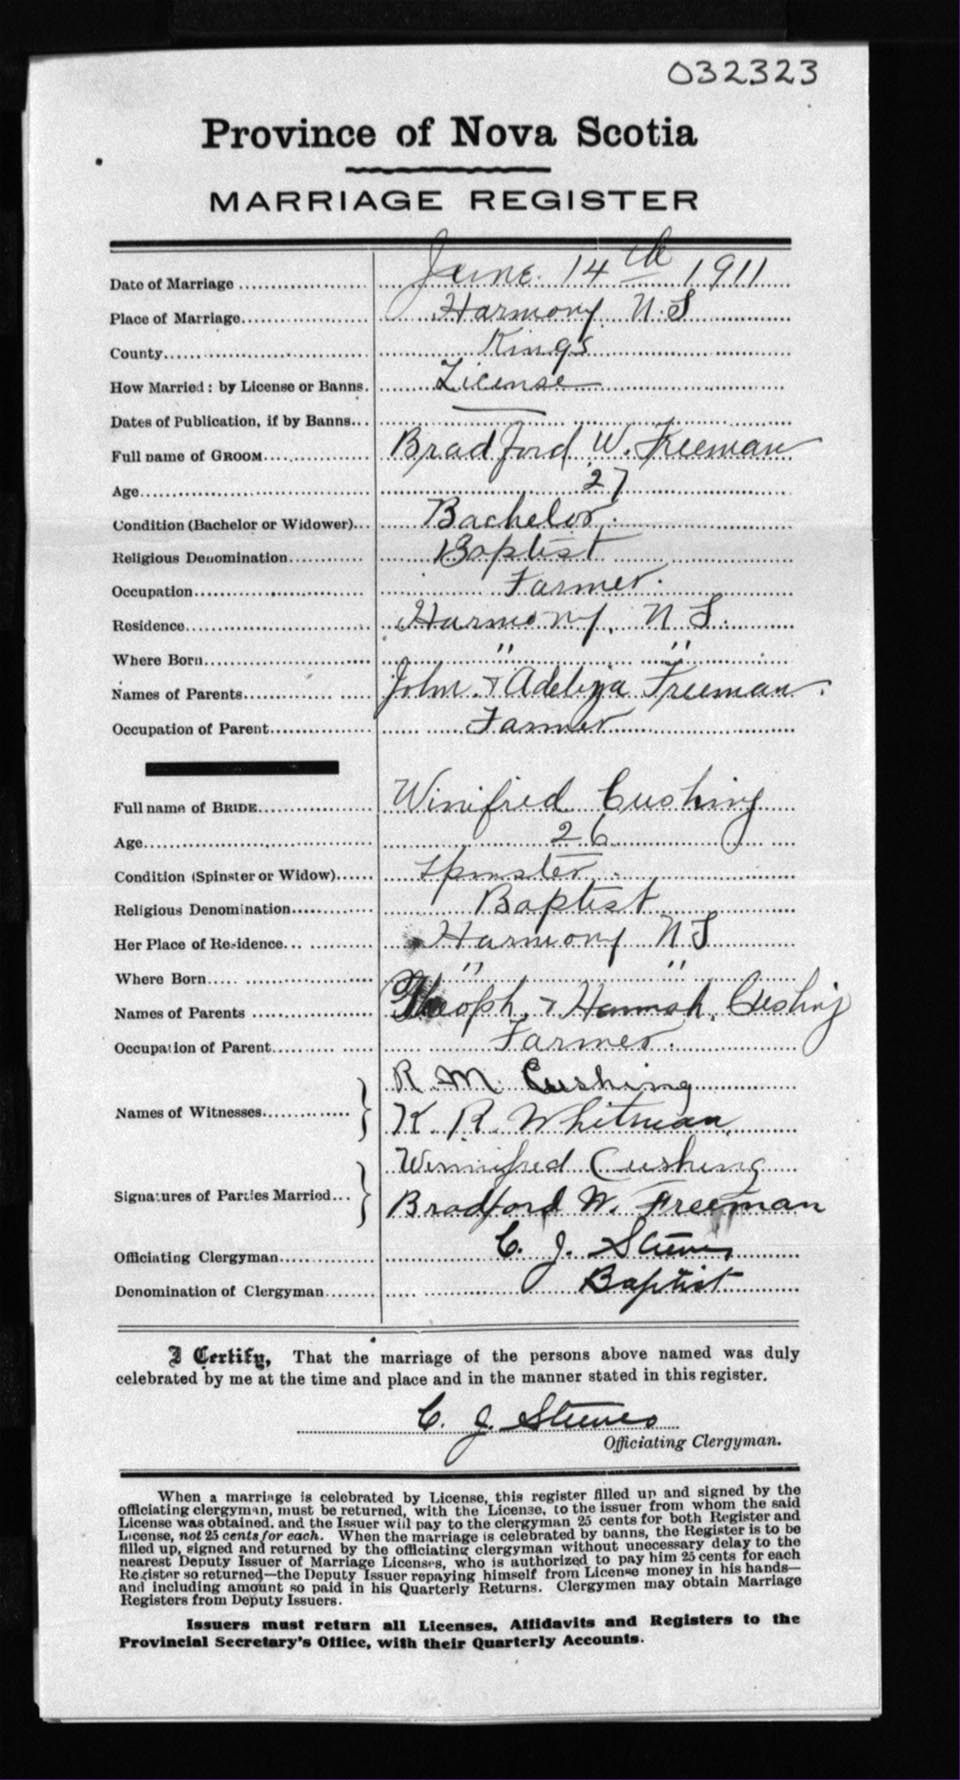 032323
Province of Nova Scotia
MARRIAGE REGISTER
Date of Marriage June 14th 1911
Place of Marriage Harmony N.S
County Kings
How Married: by License or Banns. License
Dates of Publication, if by Banns —
Full name of GROOM Bradford W. Freeman
Age 27
Condition (Bachelor or Widower) Bachelor.
Religious Denomination Baptist
Occupation Farmer.
Residence Harmony, N S.
Where Born " "
Names of Parents John & Adeliza Freeman.
Occupation of Parent Farmer
Full name of BRIDE Winifred Cushing
Age 26
Condition (Spinster or Widow) Spinster.
Religious Denomination Baptist
Her Place of Residence Harmony N S
Where Born " "
Names of Parents Theoph. & Hannah Cushing
Occupation of Parent Farmer.
Names of Witnesses R M. Cushing
K. R. Whitman
Signatures of Parties Married Winnifred Cushing
Bradford W. Freeman
Officiating Clergyman C. J. Steeves
Denomination of Clergyman Baptist
I Certify, That the marriage of the persons above named was duly
celebrated by me at the time and place and in the manner stated in this register.
C. J. Steeves
Officiating Clergyman.
When a marriage is celebrated by License, this register filled up and signed by the
officiating clergyman, must be returned, with the License, to the issuer from whom the said
License was obtained, and the Issuer will pay to the clergyman 25 cents for both Register and
License, not 25 cents for each. When the marriage is celebrated by banns, the Register is to be
filled up, signed and returned by the officiating clergyman without unecessary delay to the
nearest Deputy Issuer of Marriage Licenses, who is authorized to pay him 25 cents for each
Register so returned—the Deputy Issuer repaying himself from License money in his hands—
and including amount so paid in his Quarterly Returns. Clergymen may obtain Marriage
Registers from Deputy Issuers.
Issuers must return all Licenses, Affidavits and Registers to the
Provincial Secretary's Office, with their Quarterly Accounts.